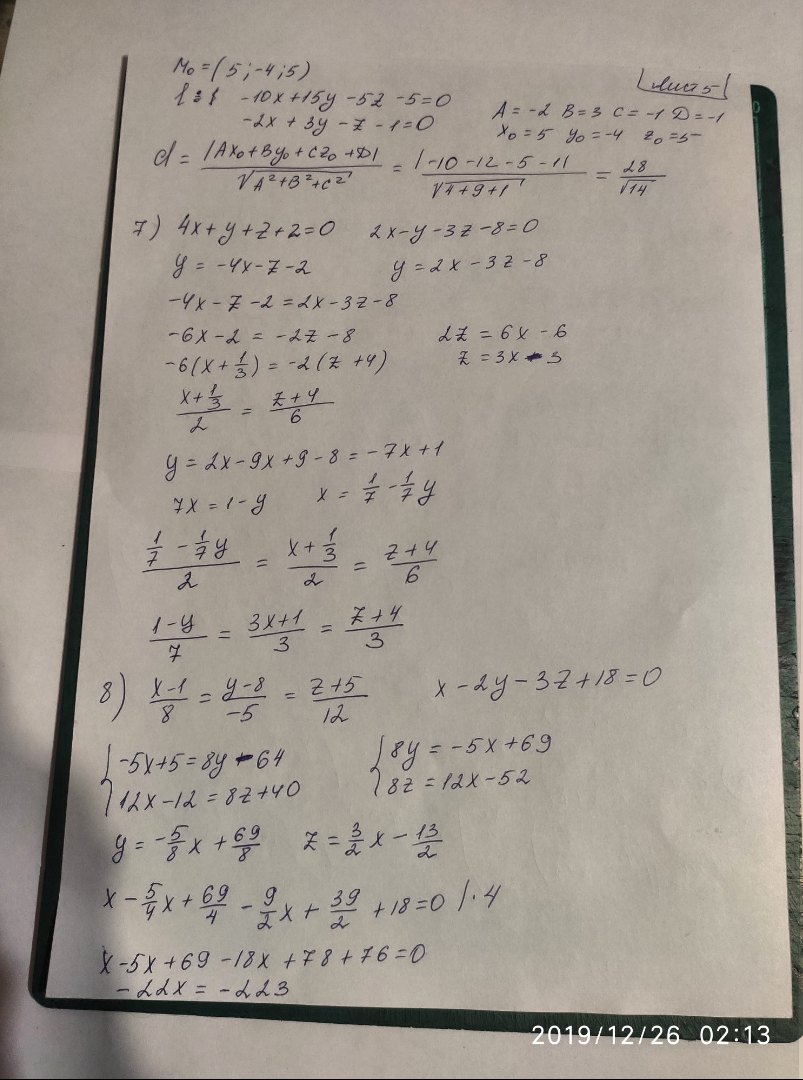 M₀ = (5 ; -4 ; 5)
Лист 5
-10x + 15y - 5z - 5 = 0
-2x + 3y - z - 1 = 0
A = -2 B = 3 C = -1 D = -1
x₀ = 5 y₀ = -4 z₀ = 5
d = |Ax₀ + By₀ + Cz₀ + D| / √(A² + B² + C²) = |-10 - 12 - 5 - 1| / √(4 + 9 + 1) = 28/√14
7) 4x + y + z + 2 = 0 2x - y - 3z - 8 = 0
y = -4x - z - 2 y = 2x - 3z - 8
-4x - z - 2 = 2x - 3z - 8
-6x - 2 = -2z - 8 2z = 6x - 6
-6(x + 1/3) = -2(z + 4) z = 3x - 3
(x + 1/3)/2 = (z + 4)/6
y = 2x - 9x + 9 - 8 = -7x + 1
7x = 1 - y x = 1/7 - 1/7 y
(1/7 - 1/7 y)/2 = (x + 1/3)/2 = (z + 4)/6
(1 - y)/7 = (3x + 1)/3 = (z + 4)/3
8) (x - 1)/8 = (y - 8)/-5 = (z + 5)/12 x - 2y - 3z + 18 = 0
{ -5x + 5 = 8y - 64 { 8y = -5x + 69
12x - 12 = 8z + 40 8z = 12x - 52
y = -5/8 x + 69/8 z = 3/2 x - 13/2
x - 5/4 x + 69/4 - 9/2 x + 39/2 + 18 = 0 | · 4
x - 5x + 69 - 18x + 78 + 76 = 0
-22x = -223
2019/12/26 02:13